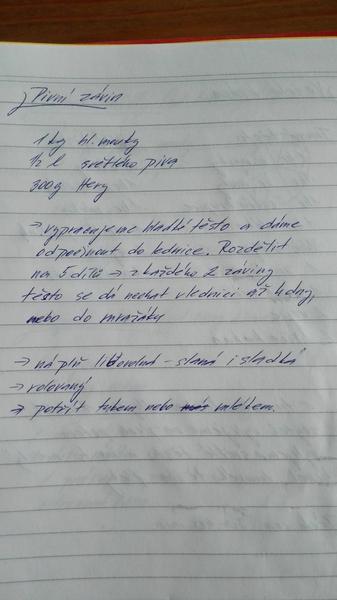 Pivní závin
1 kg hl. mouky
1/2 l světlého piva
300g Hery
→ vypracujeme hladké těsto a dáme
odpočinout do lednice. Rozdělit
na 5 dílů → z každého 2 záviny
těsto se dá nechat v lednici až 4 dny,
nebo do mrazáku
→ náplň libovolná - slaná i sladká
→ rolovaný
→ potřít tukem nebo mlékem.